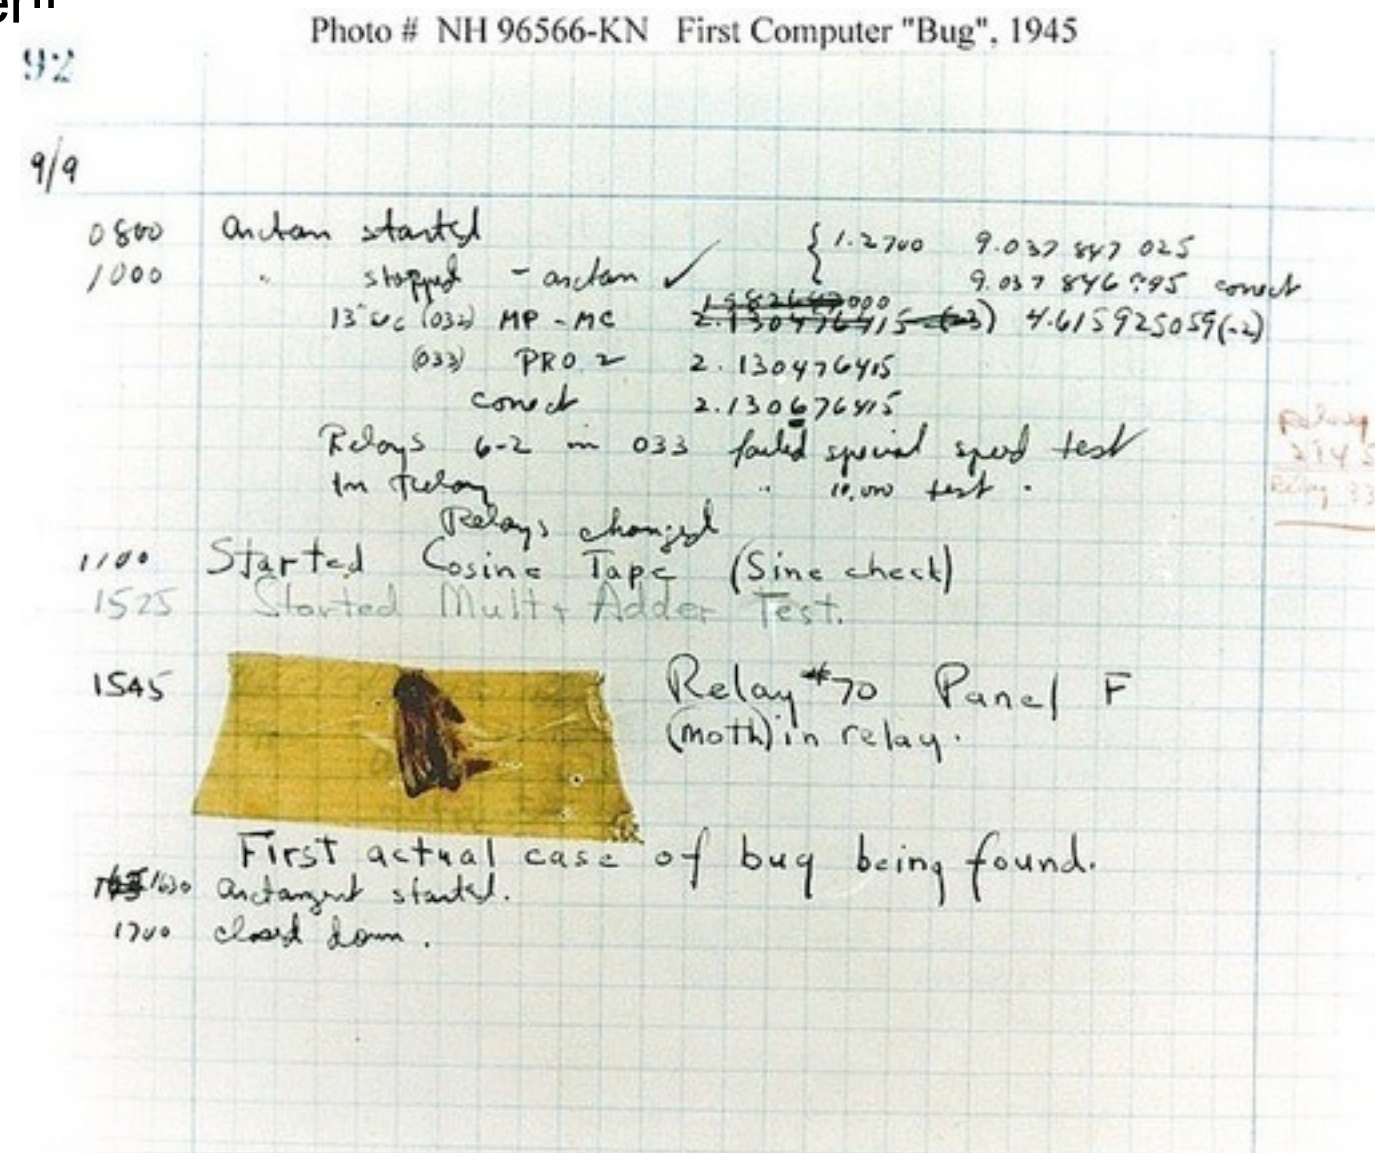 er"
Photo # NH 96566-KN First Computer "Bug", 1945
92
9/9
0800 Antan started { 1.2700 9.037 847 025
1000 " stopped - antan ✓ 9.037 846 995 correct
13" uc (032) MP - MC 2.130476415 (-3) 4.615925059(-2)
(033) PRO 2 2.130476415
correct 2.130676415
Relays 6-2 in 033 failed special speed test
In Relay " 10,000 test .
Relays changed
1100 Started Cosine Tape (Sine check)
1525 Started Mult+ Adder Test.
1545 Relay #70 Panel F
(moth) in relay.
First actual case of bug being found.
1630 Antangent started.
1700 closed down .
Relay
Relay